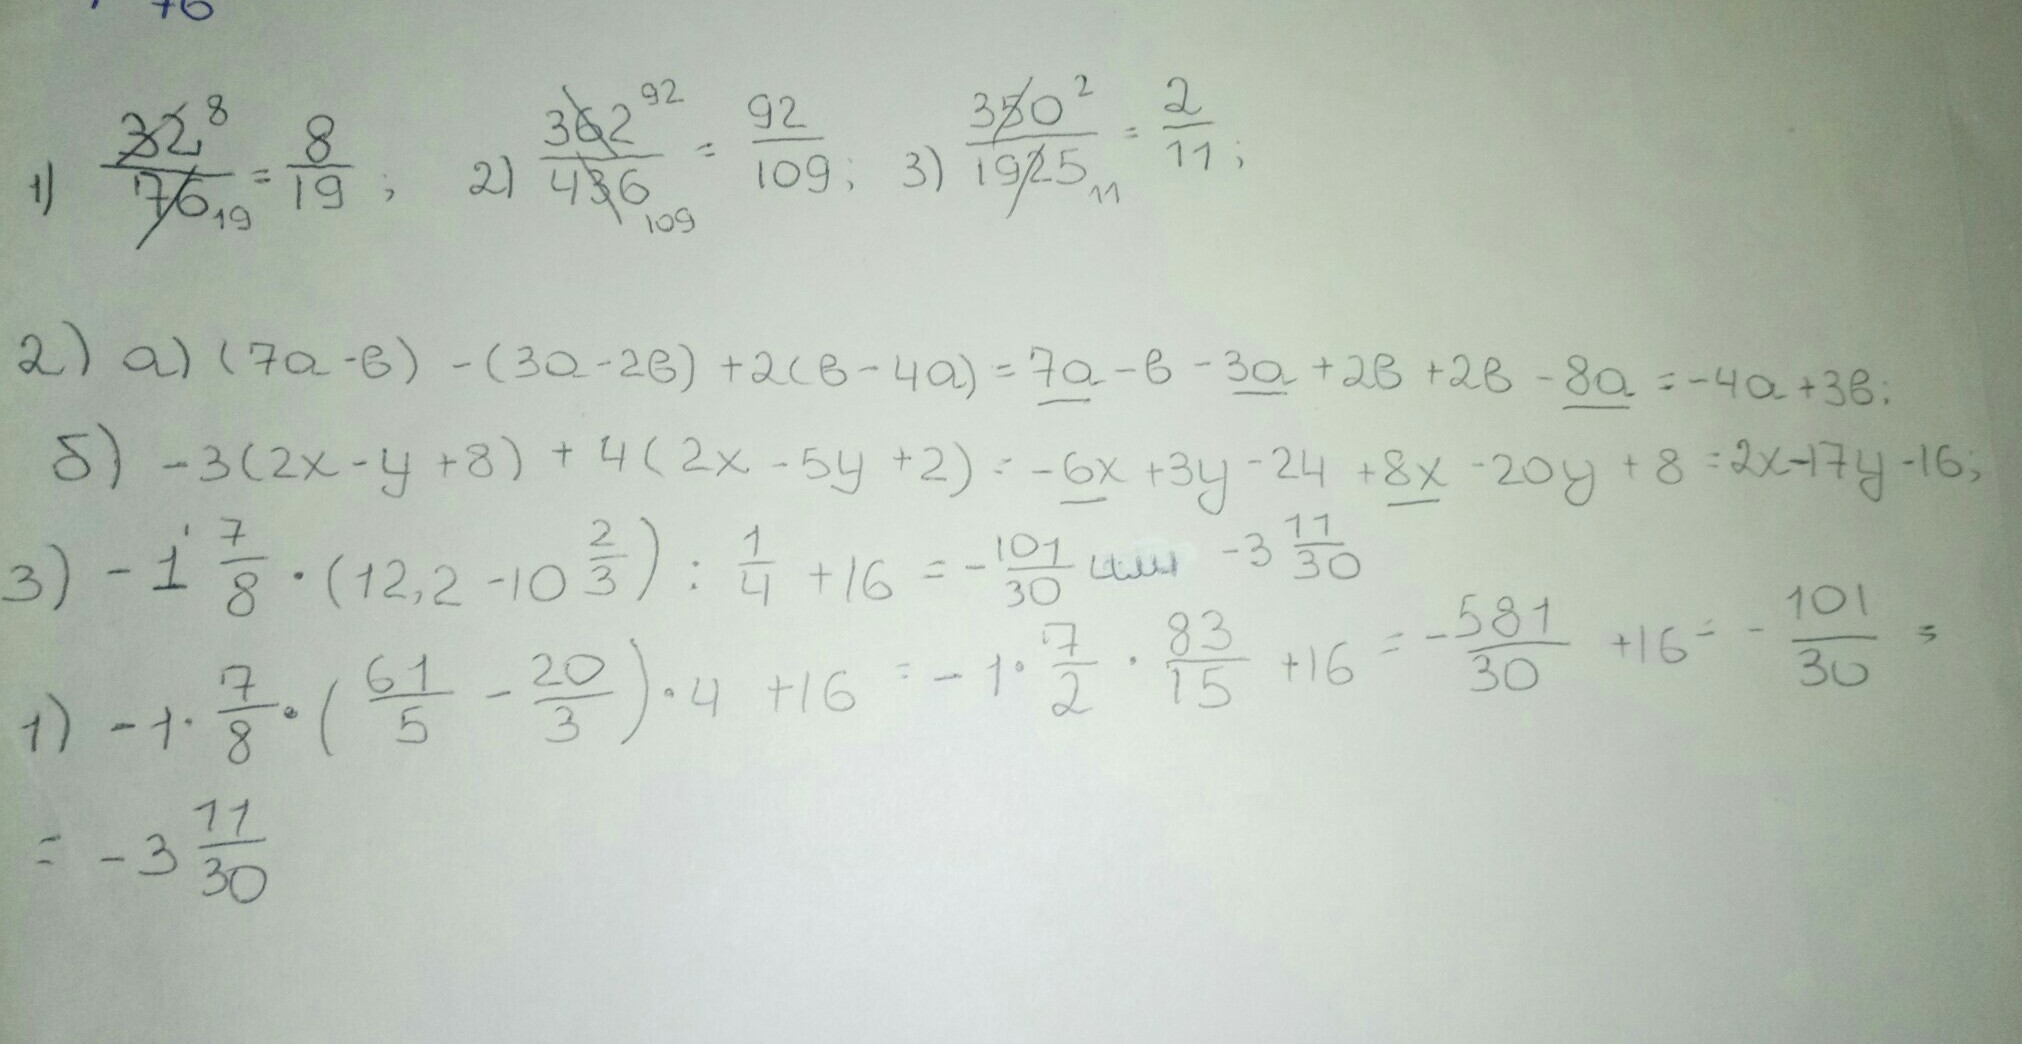 76
1) 32 8 / 76 19 = 8/19 ; 2) 362 92 / 436 109 = 92/109 ; 3) 350 2 / 1925 11 = 2/11 ;
2) а) (7a-в) -(3a-2в) +2(в-4a) = 7a -в -3a +2в +2в -8a = -4a +3в;
б) -3(2x-y+8) + 4(2x-5y+2) = -6x +3y -24 +8x -20y +8 = 2x-17y-16;
3) -1 7/8 · (12,2 -10 2/3) : 1/4 +16 = - 101/30 или -3 11/30
1) -1· 7/8 · (61/5 - 20/3) · 4 +16 = -1· 7/2 · 83/15 +16 = - 581/30 +16 = - 101/30 =
= -3 11/30